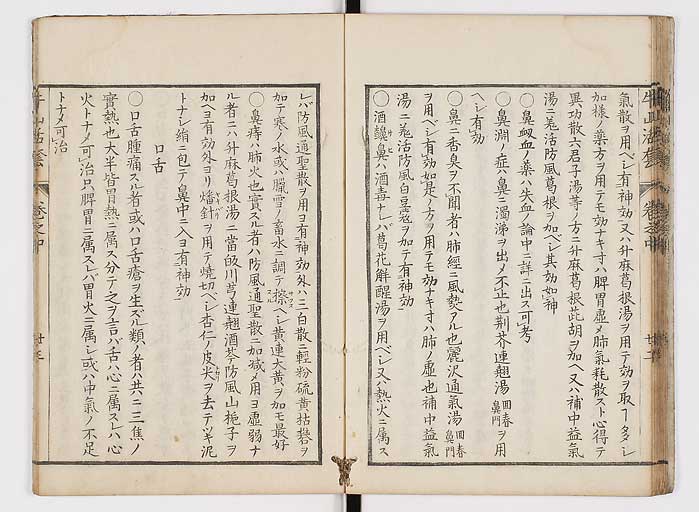 氣散ヲ用ベシ有神効又ハ升麻葛根湯ヲ用テ効ヲ取ータタシ
加様ノ藥方ヲ用テモ効ナキオハ脾胃虚〆肺氣耗散スト心得テ
異功散六君子湯等ノ方ニ升麻葛根茈胡ヲ加ヘ又ハ補中益氣
湯ニ羗活防風葛根ヲ加ベシ其効如神
○鼻衂血ノ藥ハ失血ノ論中ニ詳ニ出ス可考
○鼻淵ノ症ハ鼻ニ濁涕ヲ出〆不止也荆芥連翹湯 回春鼻門 ヲ用
ベシ有効
○鼻ニ香臭ヲ不聞者ハ肺經ニ風𤍠アル也麗沢通氣湯 回春鼻門
ヲ用ベシ有効如是ノ方ヲ用テモ効ナキオハ肺ノ虚也補中益氣
湯ニ羗活防風白豆蔲ヲ加テ有神効
○酒齇鼻ハ酒毒ナレバ葛花解酲湯ヲ用ベシ又ハ熱火ニ属ス
牛山活套 卷之中 廿二
レバ防風通聖散ヲ用ヨ有神効外ハ三白散ニ輕粉硫黄枯礬ヲ
加テ寒ノ水或ハ臘雪ノ畜水ニ調テ擦ベシ黄連大黄ヲ加モ最好
○鼻痔ハ肺火也實スル者ハ防風通聖散ニ加減〆用ヨ虚弱ナ
ル者ニハ升麻葛根湯ニ當皈川芎連翹酒芩防風山梔子ヲ
加ヘヨ有効外ヨリ燔針ヲ用テ焼切ベシ杏仁ノ皮尖ヲ去テツキ泥
トナシ絹ニ包ニテ鼻中ニ入ヨ有神効
口舌
○口舌腫痛スル者或ハ口舌瘡ヲ生ズル類ノ者ハ共ニ三焦ノ
實熱也大半皆胃熱ニ属ス分テ之ヲ言バ舌ハ心ニ属スレバ心
火トナメ可治口ハ脾胃ニ属スレバ胃火ニ属シ或ハ中氣ノ不足
トナメ可治
牛山活套 卷之中 廿三